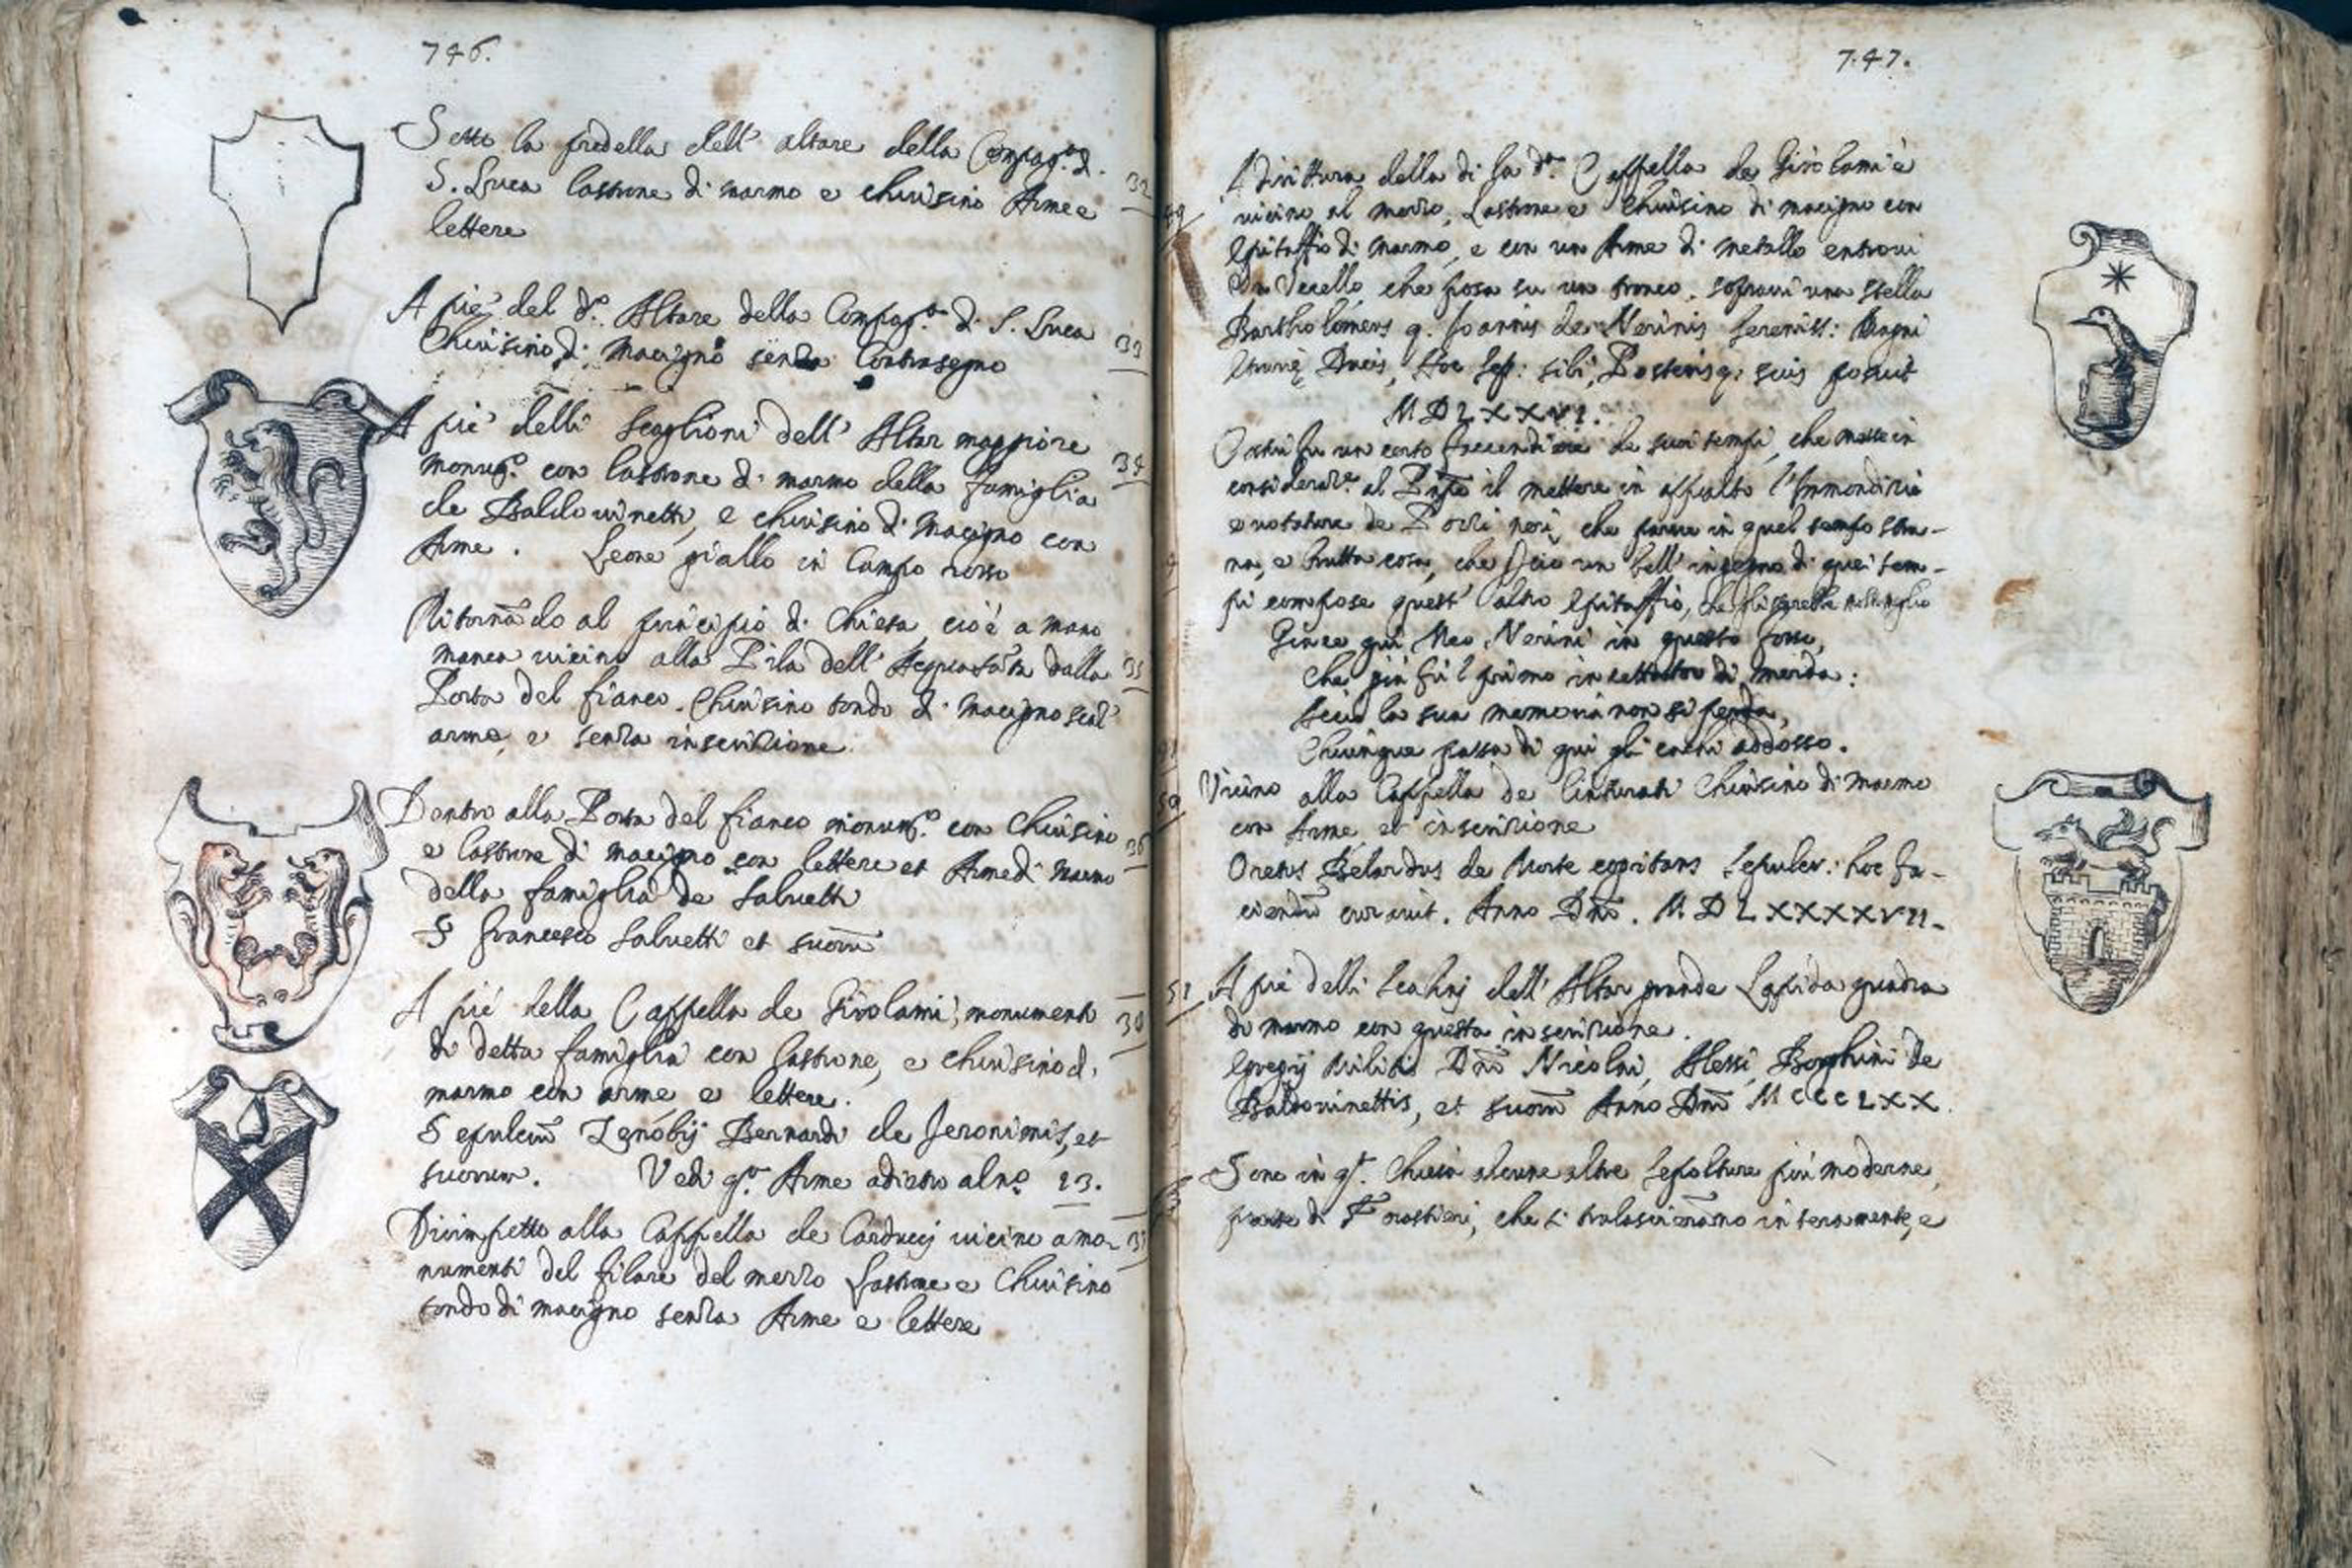 746.
Sotto la predella dell' altare della Compag.ª d.
S. Luca lastrone di marmo e chiusino Arme e 32
lettere
A piè del d.º Altare della Compag.ª di S. Luca
Chiusino di Macigno senza Contrasegno 33
A piè delli scaglioni dell' Altar maggiore
monum.º con lastrone di marmo della famiglia 34
de Baldovinetti, e chiusino di Macigno con
Arme. Leone giallo in Campo rosso
Ritornādo al principio di Chiesa, cioè a mano
manca vicino alla Pila dell' Acqua dalla 35
Porta del fianco. Chiusino tondo di Macigno
arme, e senza inscrizione.
Dentro alla Porta del fianco monum.º con Chiusino
e lastrone di macigno con lettere et Arme di marmo 36
della famiglia de Salvetti
S Francesco Salvetti et suorū
A piè della Cappella de Girolami, monumento
di detta famiglia con lastrone, e chiusino d.
marmo con arme e lettere.
Sepulcrū Zenobij Bernardi de Jeronimis, et
suorum. Vedi q.ª Arme adietro al nº 23.
Dirimpetto alla Cappella de Carducci vicino a mo-
numenti del filare del mezzo Lastrone e Chiusino
tondo di macigno senza Arme e lettere
747.
A dirittura della di la d.ª Cappella de Girolami è
vicino al mezzo, Lastrone e Chiusino di macigno con
Epitaffio di marmo, e con un Arme di metallo entrovi
Un Uccello, che posa su un tronco, sopravi una stella
Bartholomeus q. Joannis de Nerinis Sereniss: Magni
Ducis, Hoc Sep: sibi, Posterisq: suis posuit
MDLXXVI.
Costui fu un certo de suoi tempi, che messe in
al il mettere in appalto l'Immondizie
e votature de Pozzi neri, che parve in quel tempo stra-
na, e brutta cosa, che un bell' ingegno di quei tem-
pi compose quest' altro Epitaffio,
Giace qui Meo Nerini in questo fosso,
Che già fù l primo di merda:
la sua memoria non si perda,
Chiunque passa di qui gli cachi addosso.
Vicino alla Cappella de Chiusino di marmo
con Arme, et inscrizione
Belardus de Morte cogitans Sepulcr: hoc fa-
ciendū curavit. Anno Dnī. MDLXXXXVII.
51 A piè delli scalinj dell' Altar grande Lapida quadra
di marmo con questa inscrizione.
Egregij Militis Dnī Nicolai, Alessi, Borghini de
Baldovinettis, et suorū Anno Dnī MCCCLXX.
Sono in q.ª Chiesa alcune altre sepolture più moderne,
parte di Forastieri, che si tralasciorānno interamente, e